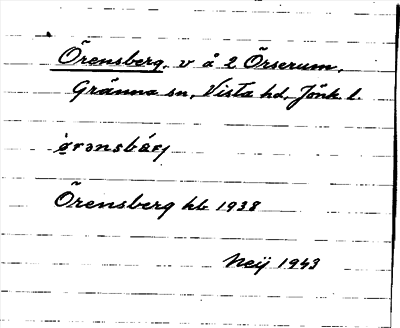 Örensberg, v å 2 Örserum,
Gränna sn, Vista hd, Jönk l.
ørənsbárj
Örensberg hb 1938
Neij 1943